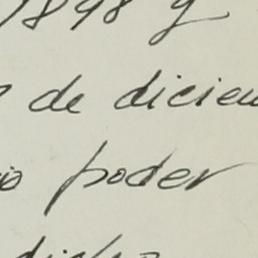 1898 y
de diciem
io poder
dicho